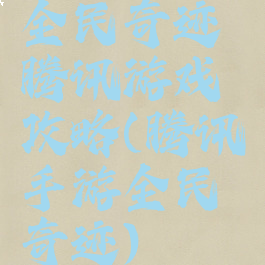 全民奇迹
腾讯游戏
攻略(腾讯
手游全民
奇迹)